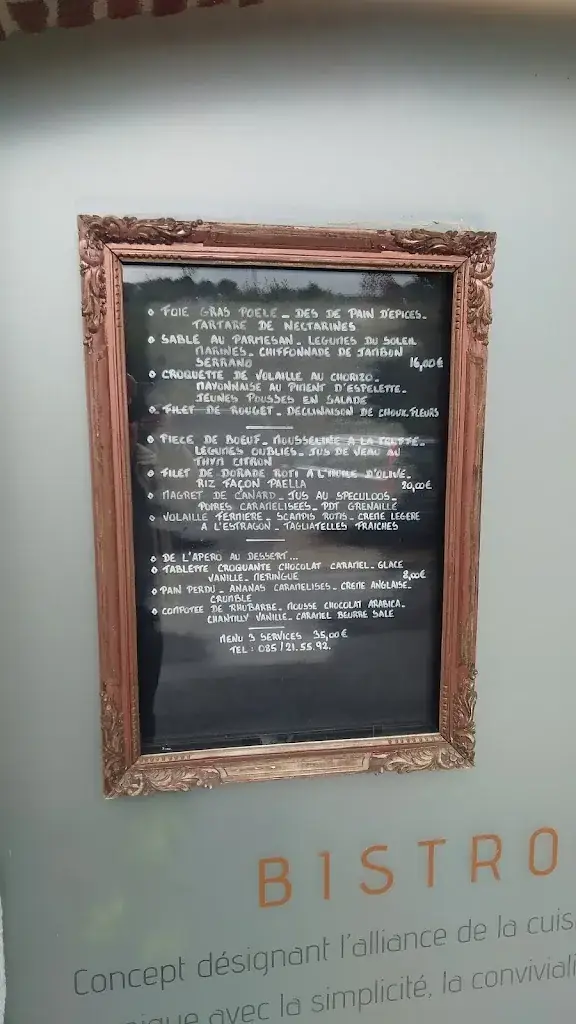 ◦ FOIE GRAS POELE _ DES DE PAIN D'EPICES _
TARTARE DE NECTARINES
◦ SABLE AU PARMESAN _ LEGUMES DU SOLEIL
MARINES _ CHIFFONNADE DE JAMBON
SERRANO 16,00€
◦ CROQUETTE DE VOLAILLE AU CHORIZO _
MAYONNAISE AU PIMENT D'ESPELETTE _
JEUNES POUSSES EN SALADE
◦ FILET DE ROUGET _ DECLINAISON DE CHOUX.FLEURS
◦ PIECE DE BOEUF _ MOUSSELINE A LA TRUFFE _
LEGUMES OUBLIES _ JUS DE VEAU AU
THYM CITRON
◦ FILET DE DORADE ROTI A L'HUILE D'OLIVE _
RIZ FAÇON PAELLA 20,00€
◦ MAGRET DE CANARD _ JUS AU SPECULOOS _
POIRES CARAMELISEES _ PDT GRENAILLE
◦ VOLAILLE FERMIERE _ SCAMPIS ROTIS _ CREME LEGERE
A L'ESTRAGON _ TAGLIATELLES FRAICHES
◦ DE L'APERO AU DESSERT...
◦ TABLETTE CROQUANTE CHOCOLAT CARAMEL _ GLACE
VANILLE _ MERINGUE 8,00€
◦ PAIN PERDU _ ANANAS CARAMELISES _ CREME ANGLAISE _
CRUMBLE
◦ COMPOTEE DE RHUBARBE _ MOUSSE CHOCOLAT ARABICA _
CHANTILLY VANILLE _ CARAMEL BEURRE SALE
MENU 3 SERVICES 35,00€
TEL : 085/21.55.92.
BISTRO
Concept désignant l'alliance de la cuis
ique avec la simplicité, la conviviali